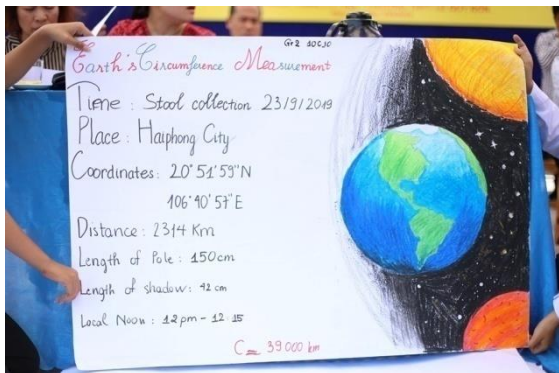 Gr2 10C10
Earth's Circumference Measurement
Time : Stool collection 23/9/2019
Place : Haiphong City
Coordinates: 20°51'59"N
106°40'57"E
Distance : 2314 Km
Length of Pole : 150cm
Length of shadow: 42 cm
Local Noon : 12pm - 12:15
C = 39 000 km